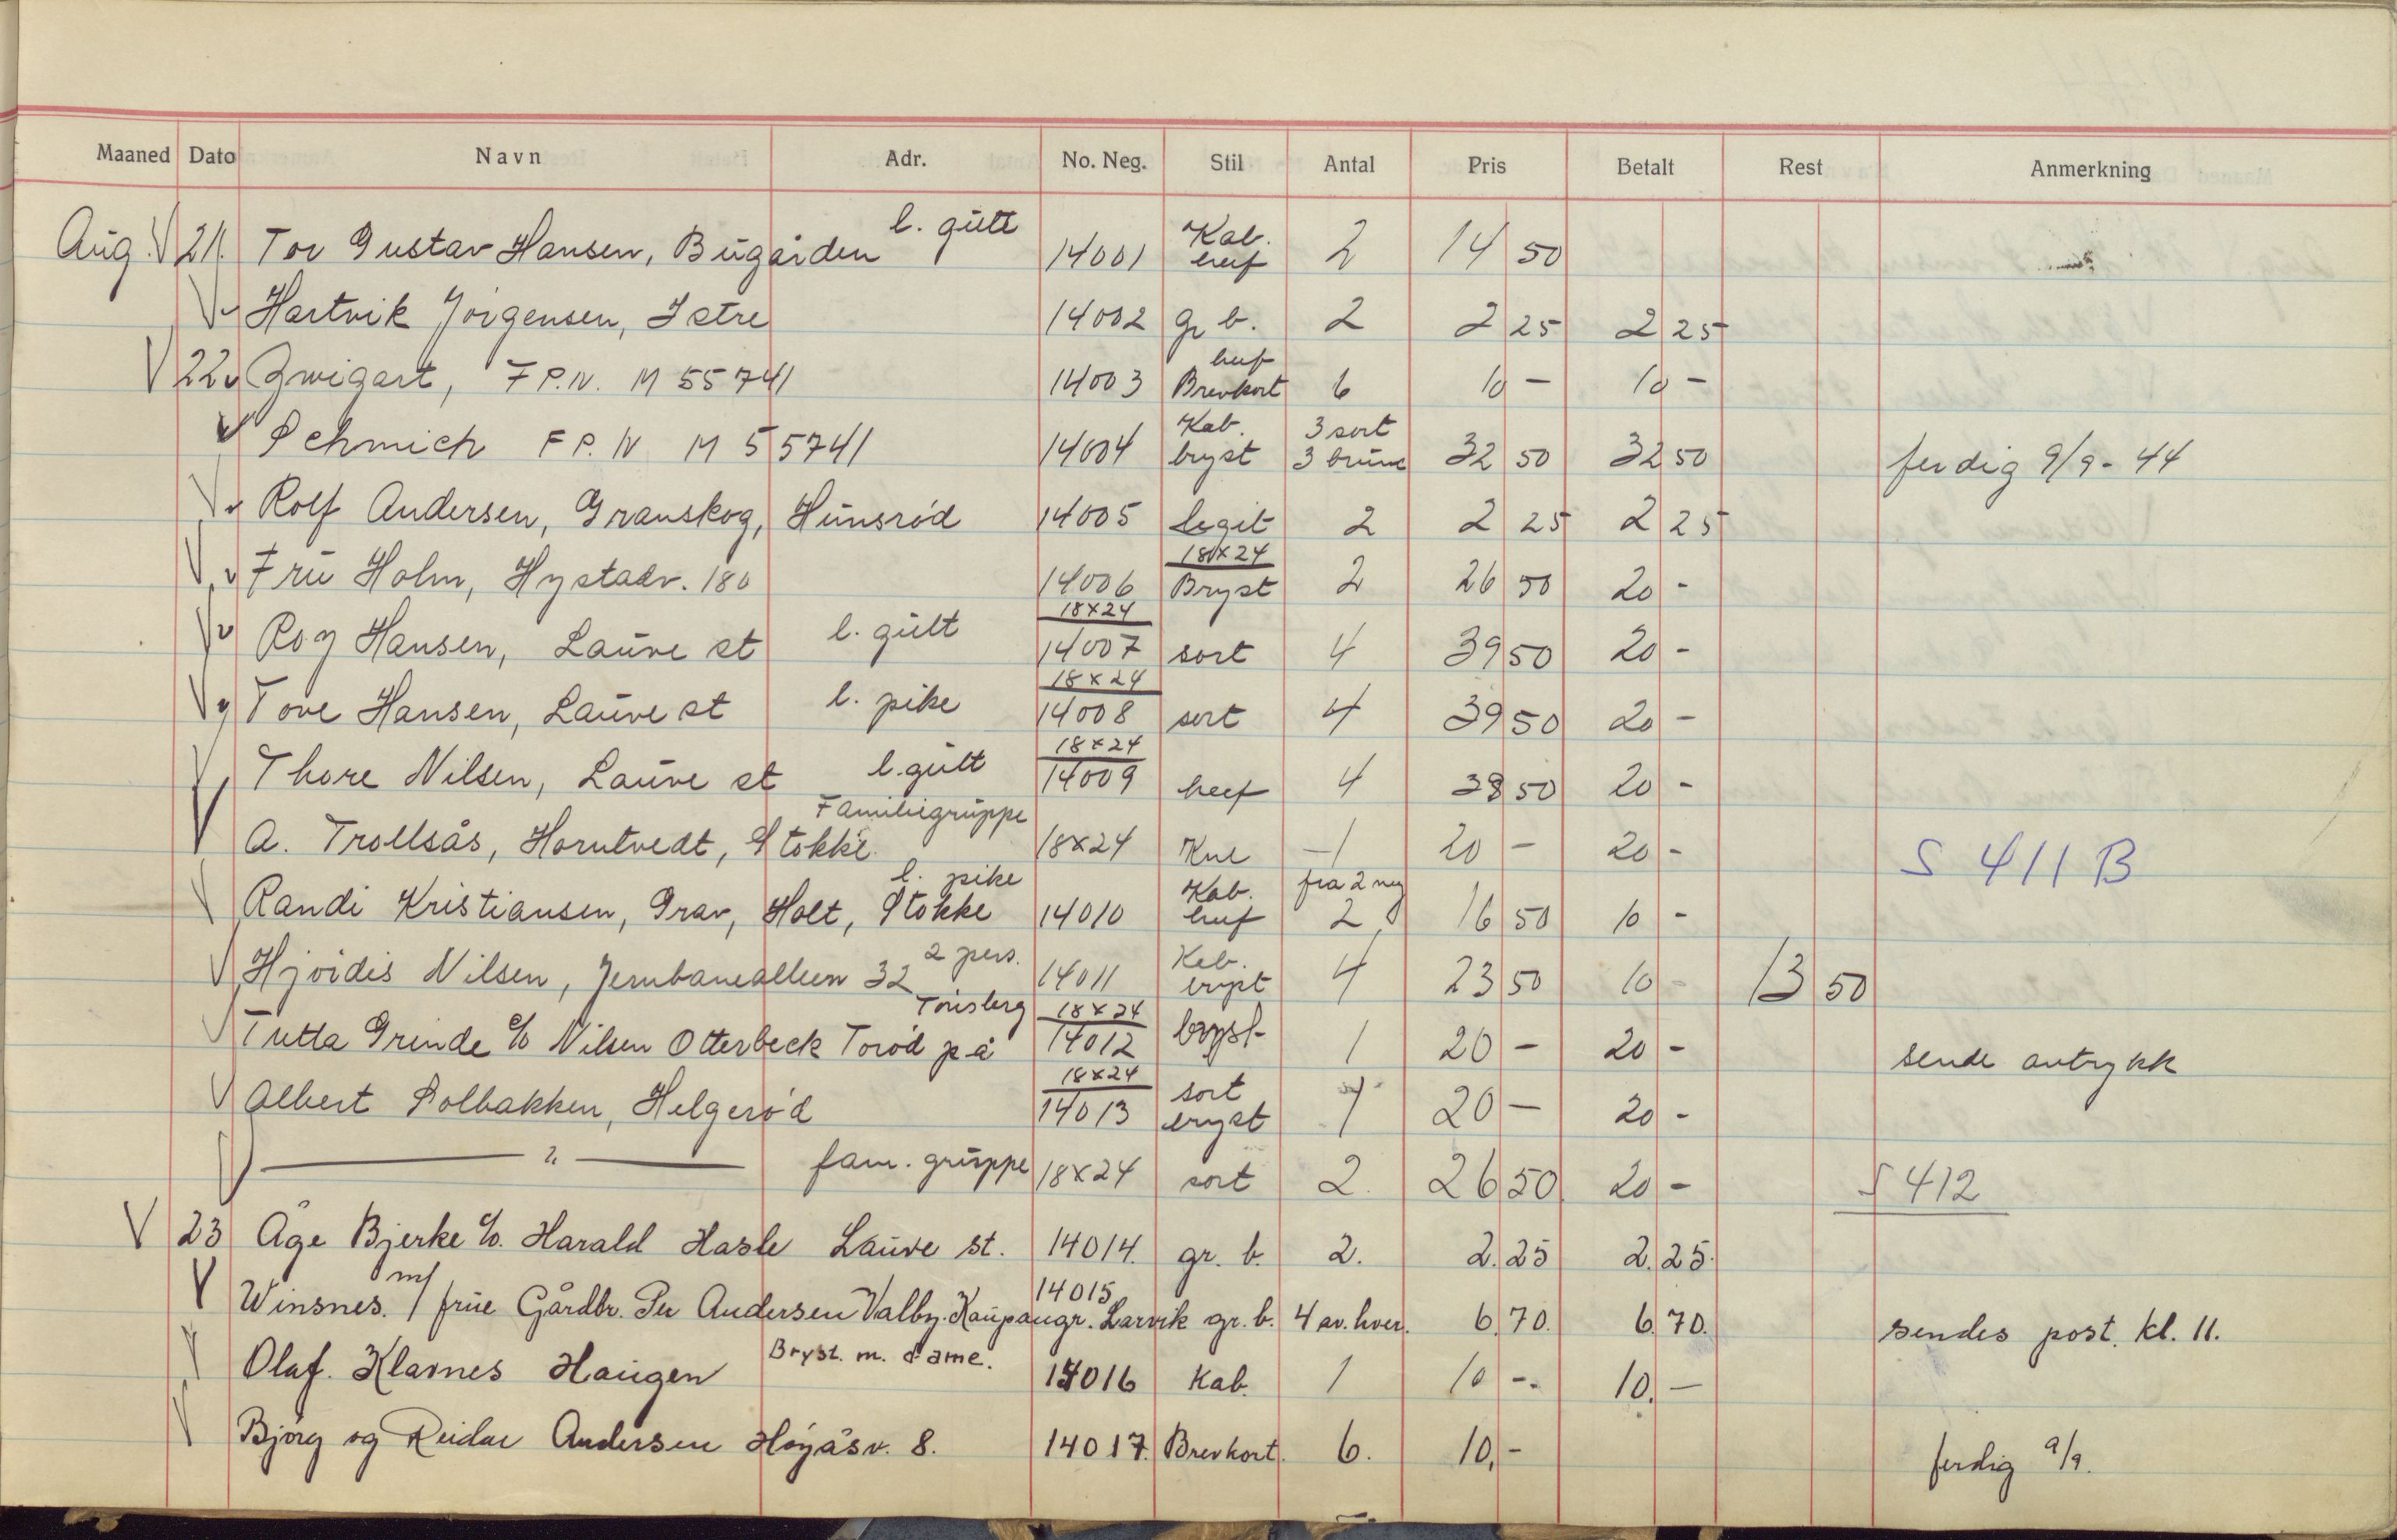 Maaned Dato Navn Adr. No. Neg. Stil Antal Pris Betalt Rest Anmerkning
Aug. V 21. Tor Gustav Hansen, Bugården l. gutt 14001 Kab. 2 14 50
V Hartvik Jörgensen, Istre 14002 gr b. 2 2 25 2 25
V 22 Zwigart, F P.N. M 55741 14003 Brevkort 6 10 - 10 -
V Schmich F P. N M 55741 14004 Kab. bryst 3 sort 3 brune 32 50 32 50 ferdig 9/9 - 44
V Rolf Andersen, Granskog, Hunsrød 14005 Legit 2 2 25 2 25
V Fru Holm, Hystadv. 180 14006 18x24 Bryst 2 26 50 20 -
V Roy Hansen, Lauve st l. gutt 18x24 14007 sort 4 39 50 20 -
V Tove Hansen, Lauve st l. pike 18x24 14008 sort 4 39 50 20 -
V Thore Nilsen, Lauve st l. gutt 18x24 14009 4 38 50 20 -
V A. Trollsås, Horntvedt, Stokke Familiegruppe 18x24 Kne 1 20 - 20 - S 411 B
V Randi Kristiansen, Grav, Holt, Stokke l. pike 14010 Kab. fra 2 neg 2 16 50 10 -
V Hjördis Nilsen, Jernbanealleen 32 2 pers. 14011 Kab. bryst 4 23 50 10 - 13 50
V Tutta Grinde c/o Nilsen Otterbeck Torød p.å Tönsberg 18x24 14012 bryst 1 20 - 20 - sende avtrykk
V Albert Solbakken, Helgerød 18x24 14013 sort bryst 1 20 - 20 -
V — " — fam. gruppe 18x24 sort 2. 26 50 20 - S 412
V 23 Åge Bjerke c/o. Harald Hasle Lauve st. 14014. gr. b. 2. 2.25 2.25.
V Winsnes. m/ frue Gårdbr. Per Andersen Valby. Kaupangr. Larvik 14015 gr. b. 4 av. hver. 6.70. 6.70. sendes post. kl. 11.
V Olaf. Klavnes Haugen Bryst. m. dame. 14016 Kab. 1 10 -. 10. -
V Bjørg og Reidar Andersen Høyåsv. 8. 14017. Brevkort. 6. 10,- ferdig 9/9.